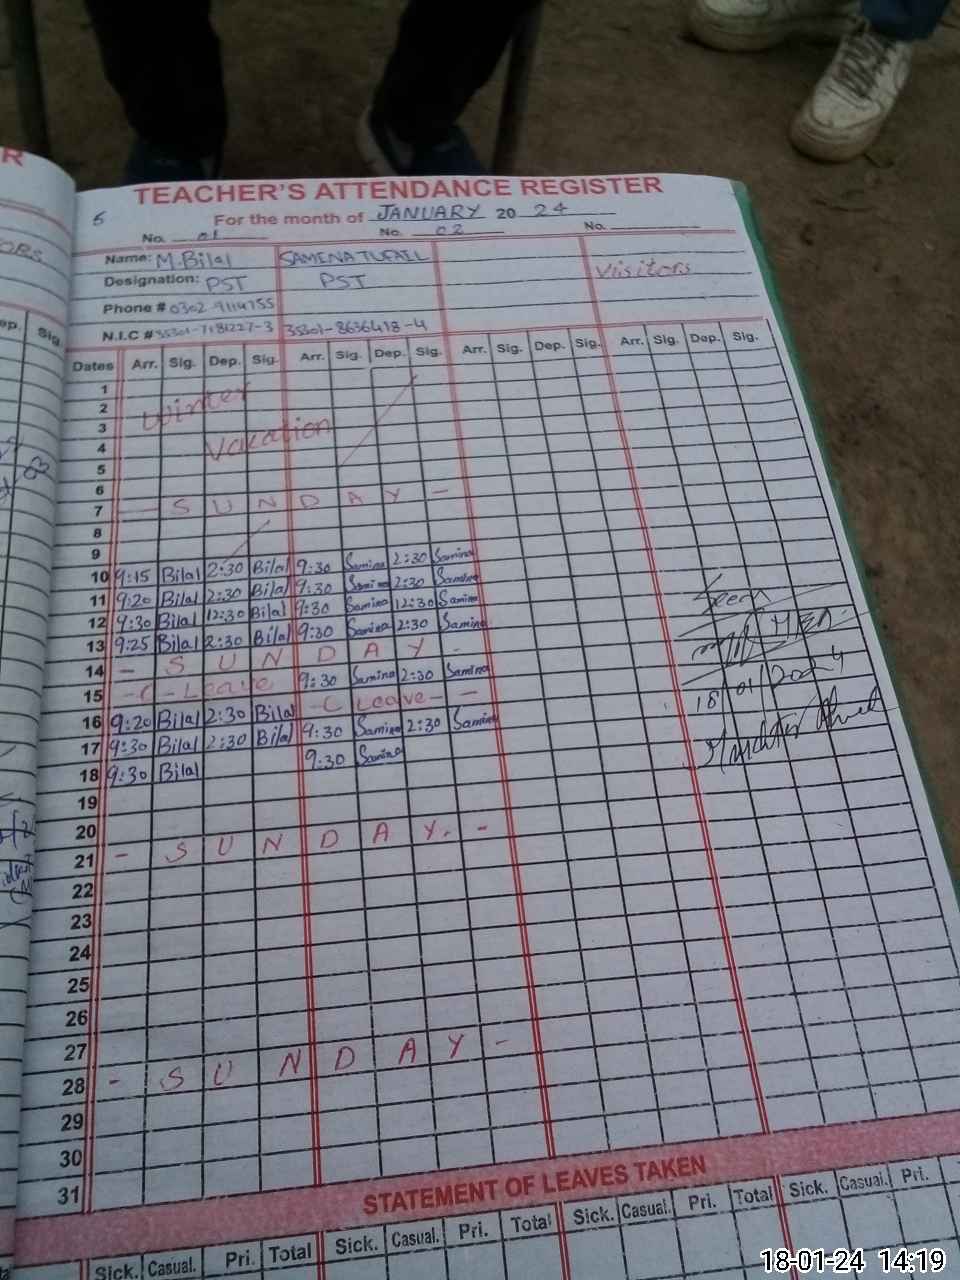 R
TEACHER'S ATTENDANCE REGISTER
5 For the month of JANUARY 2024
No. 01 No. 02 No.
Name: M.Bilal SAMINA TUFAIL
Designation: PST PST Visitors
Phone # 0302-9114755
N.I.C # 35301-7181227-3 35301-8636418-4
Dates Arr. Sig. Dep. Sig. Arr. Sig. Dep. Sig. Arr. Sig. Dep. Sig. Arr. Sig. Dep. Sig.
1
2 Winter
3
4 Vacation
5
6
7 - S U N D A Y -
8
9
10 9:15 Bilal 2:30 Bilal 9:30 Samina 2:30 Samina
11 9:20 Bilal 2:30 Bilal 9:30 Samina 2:30 Samina
12 9:30 Bilal 12:30 Bilal 9:30 Samina 12:30 Samina
13 9:25 Bilal 2:30 Bilal 9:30 Samina 2:30 Samina
14 - S U N D A Y -
15 - C - Leave 9:30 Samina 2:30 Samina
16 9:20 Bilal 2:30 Bilal - C Leave - -
17 9:30 Bilal 2:30 Bilal 9:30 Samina 2:30 Samina
18 9:30 Bilal 9:30 Samina
19
20
21 - S U N D A Y. -
22
23
24
25
26
27
28 - S U N D A Y -
29
30
31
Seen
18/01/2024
STATEMENT OF LEAVES TAKEN
Sick. Casual. Pri. Total Sick. Casual. Pri. Total Sick. Casual. Pri. Total Sick. Casual. Pri.
18-01-24 14:19